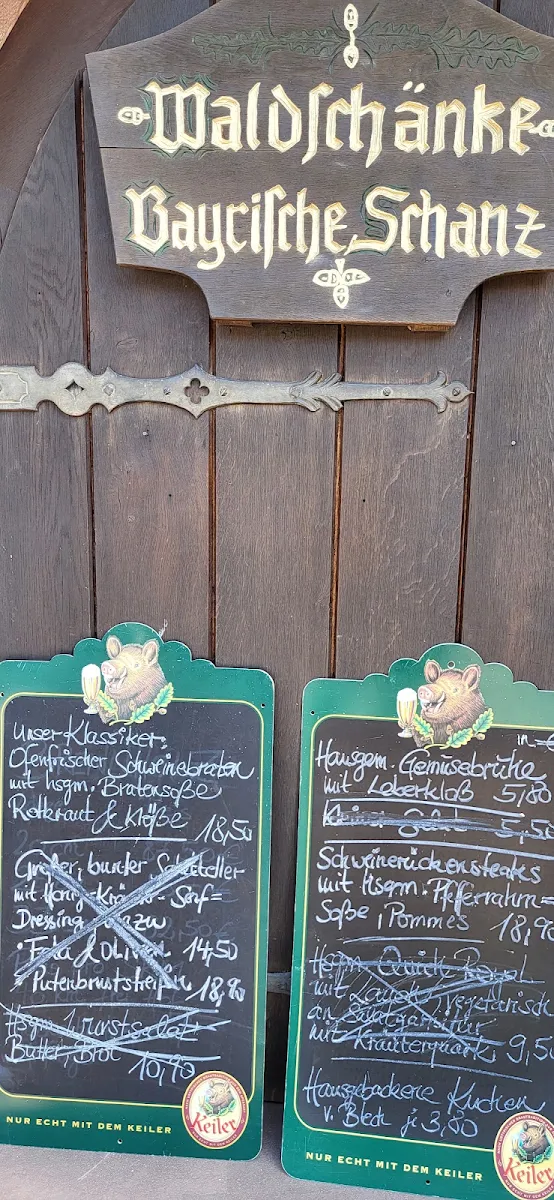 Waldschänke
Bayrische Schanz
Unser Klassiker:
Ofenfrischer Schweinebraten
mit hsgm. Bratensoße
Rotkraut & Klöße 18,50
Großer, bunter Salatteller
mit Honig-Kräuter-Senf=
Dressing dazu
• Feta & Oliven 14,50
• Putenbruststreifen 18,90
Hsgm. Wurstsalat
Butter, Brot 10,90
NUR ECHT MIT DEM KEILER
Keiler
in €
Hausgem. Gemüsebrühe
mit Leberkloß 5,80
Kleiner Salat 5,50
Schweinerückensteaks
mit Hsgm. Pfefferrahm=
Soße, Pommes 18,90
Hsgm. Quiche
mit Lauch, vegetarisch
an Salatgarnitur
mit Kräuterquark 9,50
Hausgebackene Kuchen
v. Blech je 3,80
NUR ECHT MIT DEM KEILER
Keiler